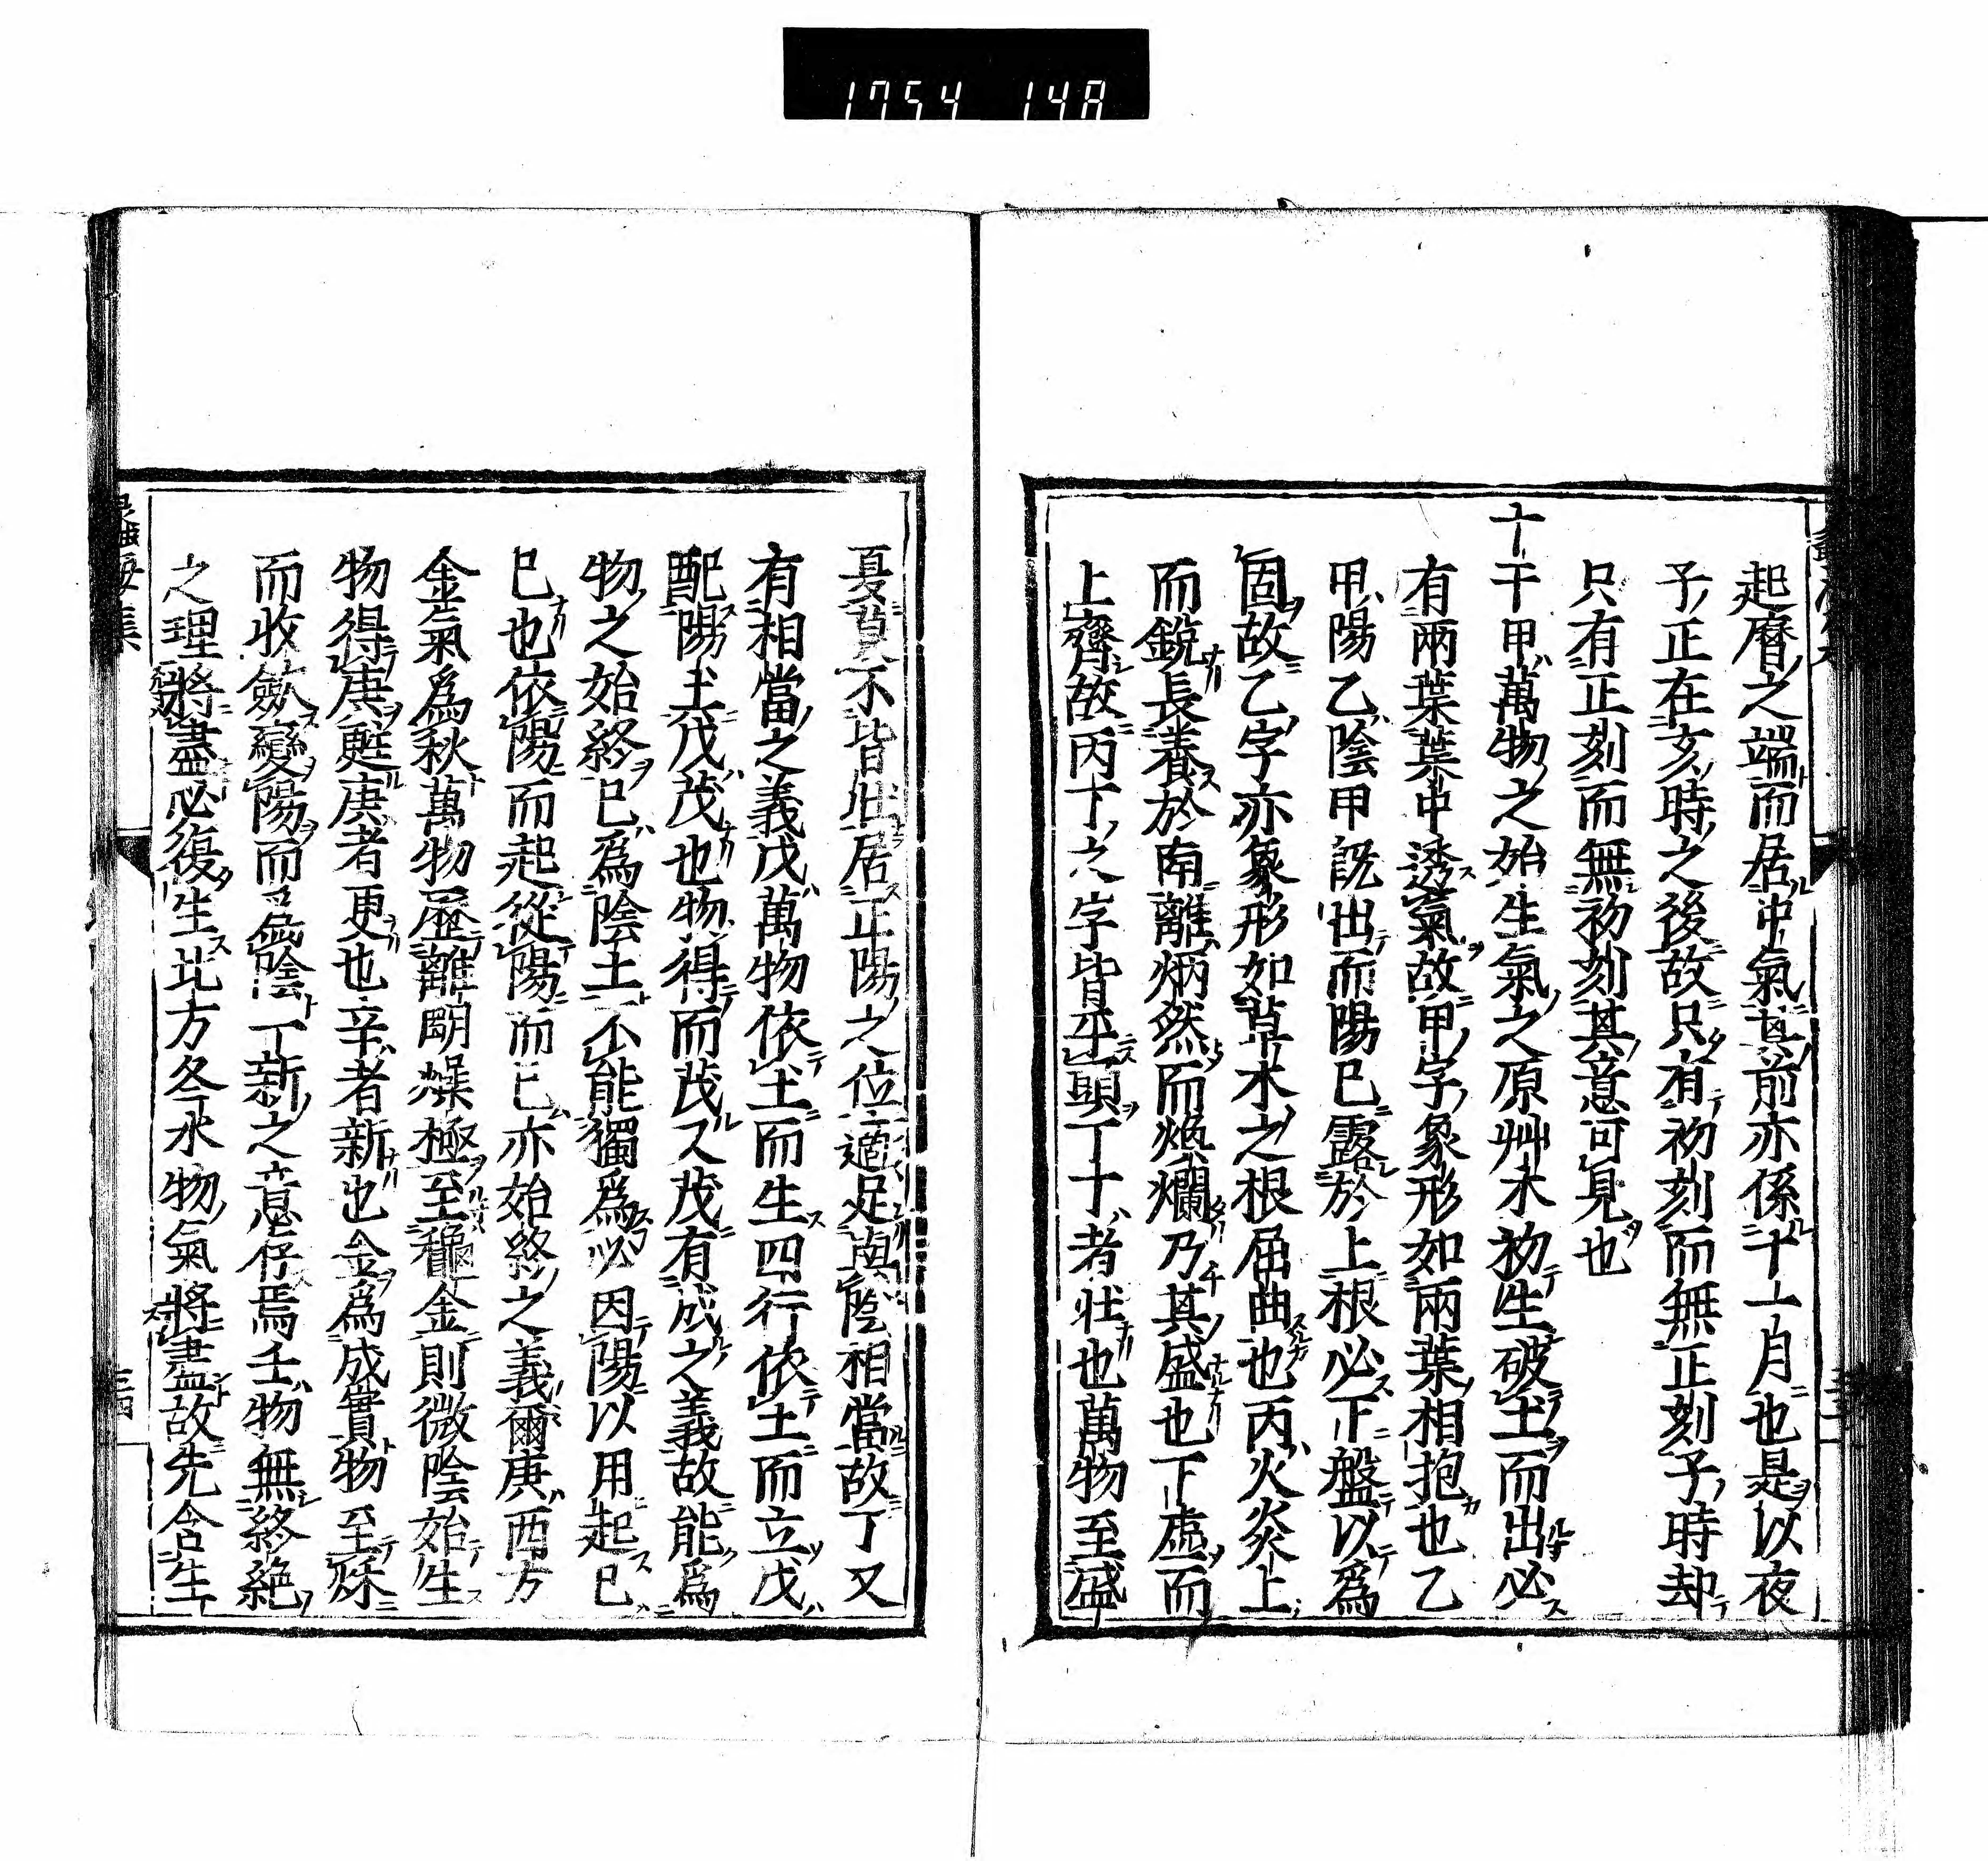 1754 148
起曆之端而居中氣其前亦係十一月也是以夜
子正在亥時之後故只有初刻而無正刻子時却
只有正刻而無初刻其意可見也
十干甲萬物之始生氣之原艸木初生破土而出必
有兩葉葉中透氣故甲字象形如兩葉相抱也乙
甲陽乙陰甲既出而陽已露於上根必下盤以爲
固故乙字亦象形如草木之根屈曲也丙火炎上
而銳長養於南離炳然而煥爛乃其盛也下虛而
上齊故丙下之字皆平頭丁十者壯也萬物至盛
夏莫不皆壯居正陽之位適足與陰相當故丁又
有相當之義戊萬物依土而生四行依土而立戊
配陽土戊茂也物得而茂又茂有成之義故能爲
物之始終己爲陰土不能獨爲必因陽以用起己
已也依陽而起從陽而已亦始終之義爾庚西方
金氣爲秋萬物歷離明燥極至龝金則微陰始生
物得庚甦庚者更也辛者新也金爲成實物至秌
而收斂變陽而爲陰一新之意存焉壬物無終絕
之理將盡必復生北方冬水物氣將盡故先含生